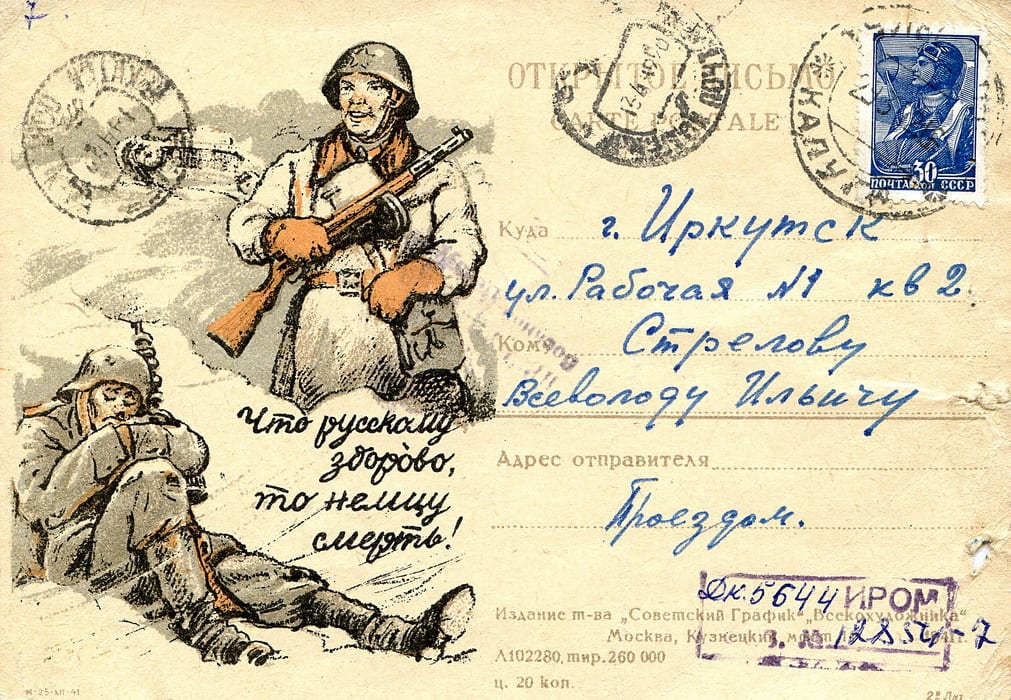 ОТКРЫТОЕ ПИСЬМО
CARTE POSTALE
30
ПОЧТА СССР
Куда г. Иркутск
ул. Рабочая №1 кв 2
Кому Стрелову
Всеволоду Ильичу
Адрес отправителя
Проездом.
Что русскому
здорово,
то немцу
смерть!
Дк. 5644 ИРОМ
12854-7
Издание т-ва „Советский График“ „Всекохудожника“
Москва, Кузнецкий
Л102280, тир. 260 000
ц. 20 коп.
М-25-XII-41